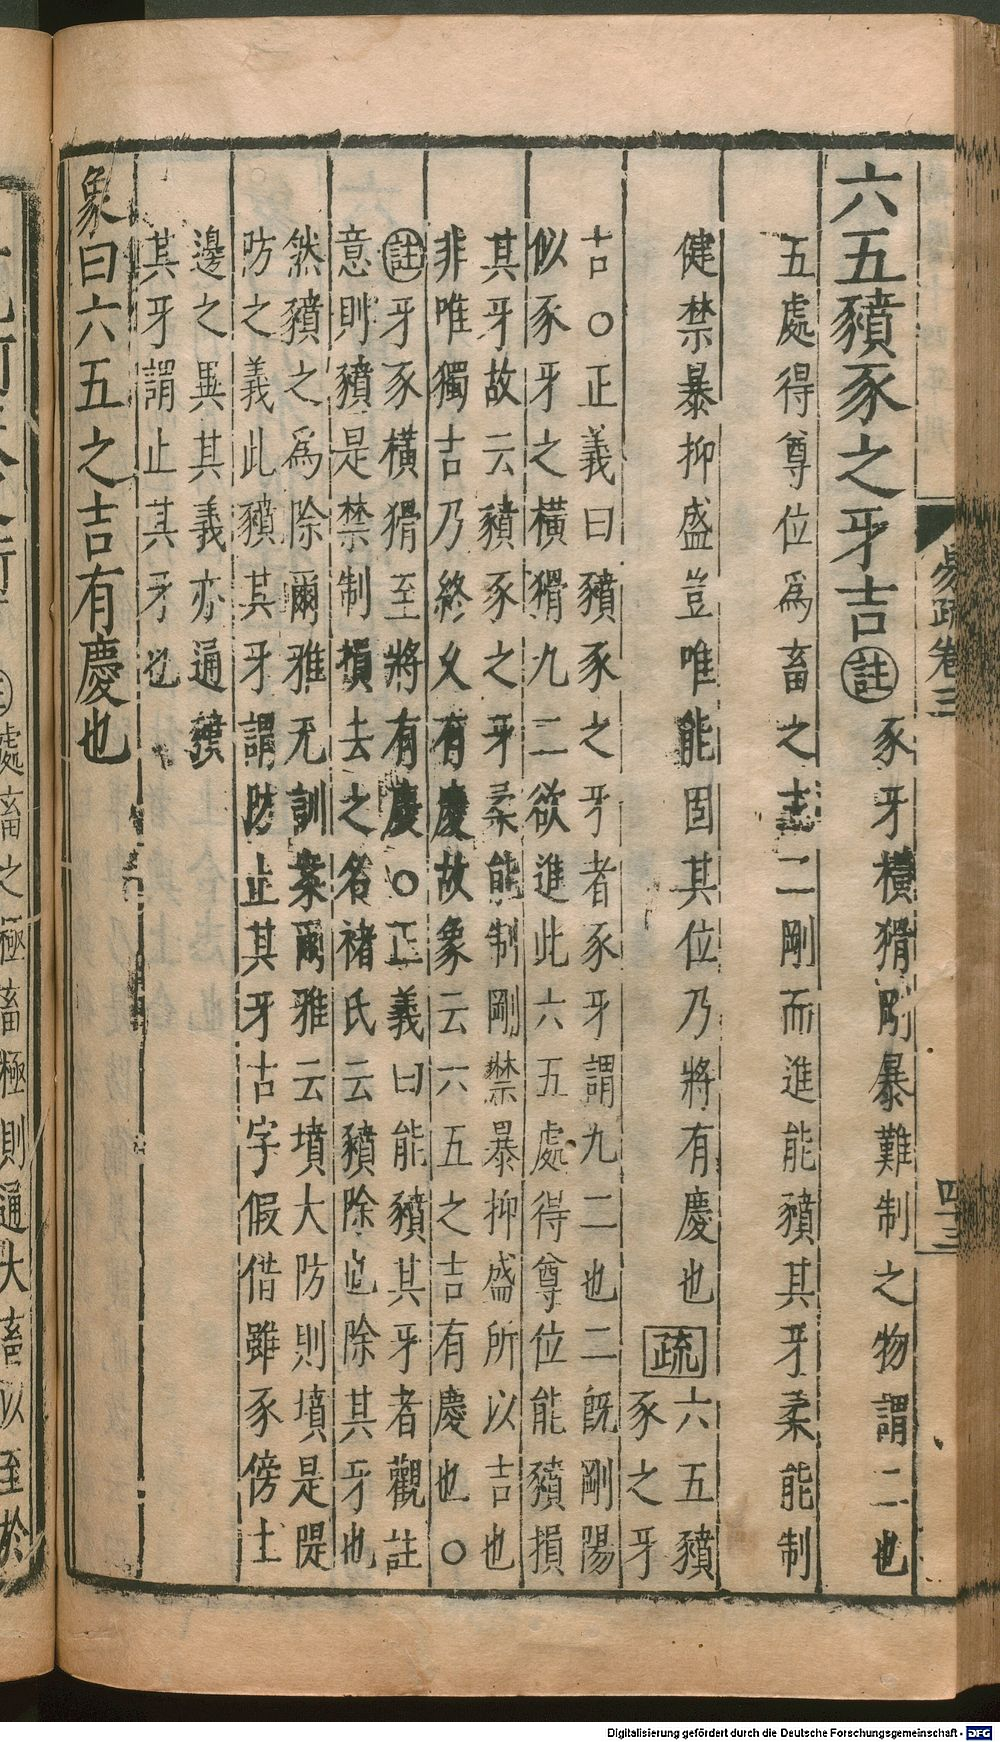 六五豶豕之牙吉註豕牙橫猾剛暴難制之物謂二也
五處得尊位爲畜之主二剛而進能豶其牙柔能制
健禁暴抑盛豈唯能固其位乃將有慶也疏六五豶
豕之牙
吉○正義曰豶豕之牙者豕牙謂九二也二旣剛陽
似豕牙之橫猾九二欲進此六五處得尊位能豶損
其牙故云豶豕之牙柔能制剛禁暴抑盛所以吉也
非唯獨吉乃終乆有慶故象云六五之吉有慶也○
註牙豕橫猾至將有慶○正義曰能豶其牙者觀註
意則豶是禁制損去之名褚氏云豶除也除其牙也
然豶之爲除爾雅无訓案爾雅云墳大防則墳是隄
防之義此豶其牙謂防止其牙古字假借雖豕傍土
邊之異其義亦通豶
其牙謂止其牙也
象曰六五之吉有慶也
易疏卷三
四十三
處畜之極畜極則通大畜以至於
Digitalisierung gefördert durch die Deutsche Forschungsgemeinschaft - DFG